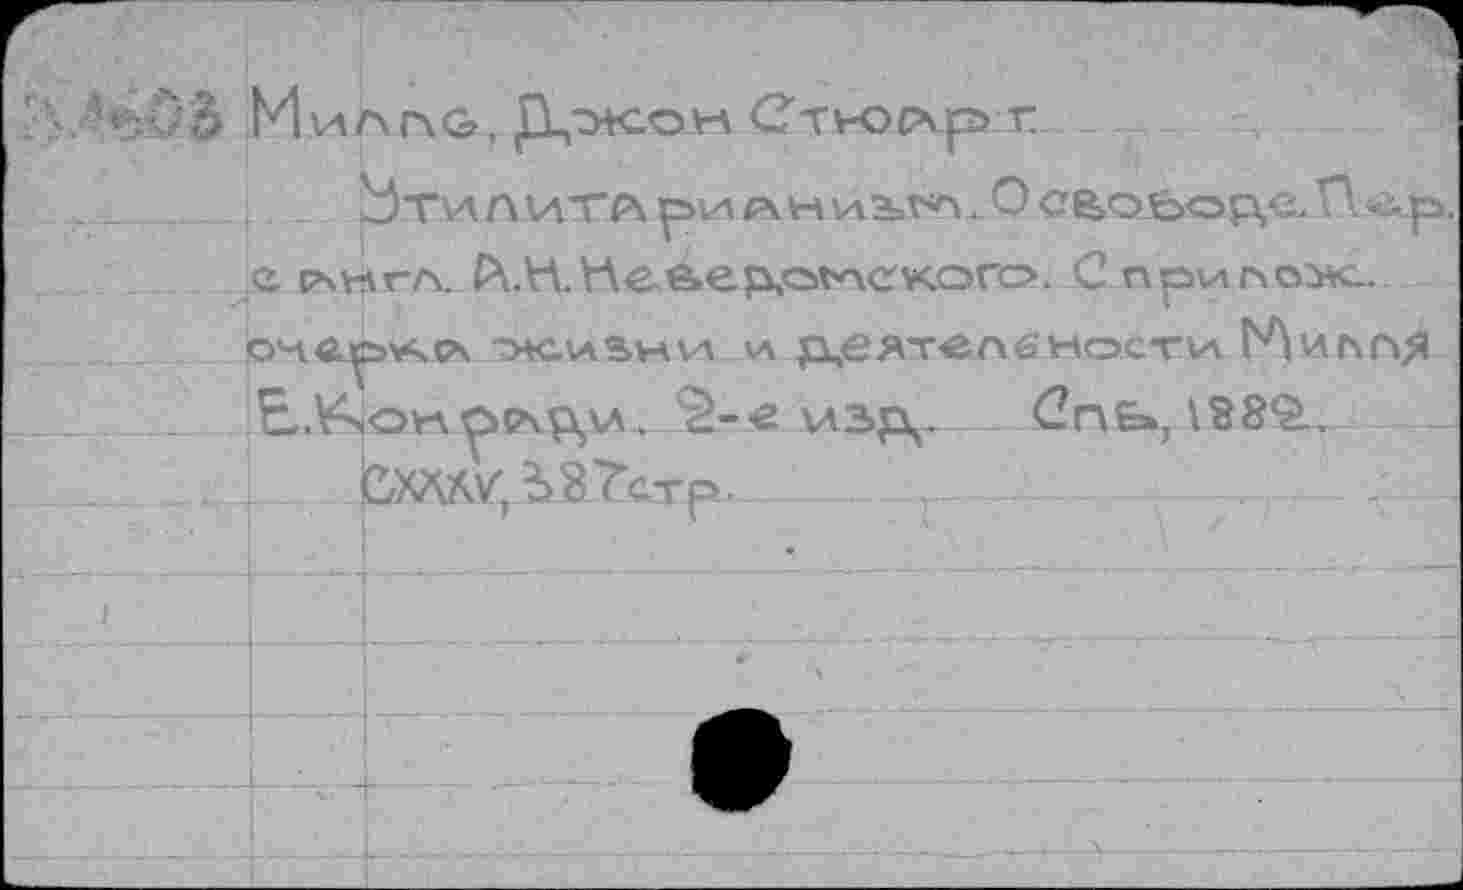 Милль, Джон Стюарт.
Утилитарианизм. О свободе. Пер.
с англ. А.Н. Неведомского. С прилож.
очерка жизни и деятельности Милля
Е. Конради. 2-е изд. Спб., 1882.
CXXXV, 387 стр.